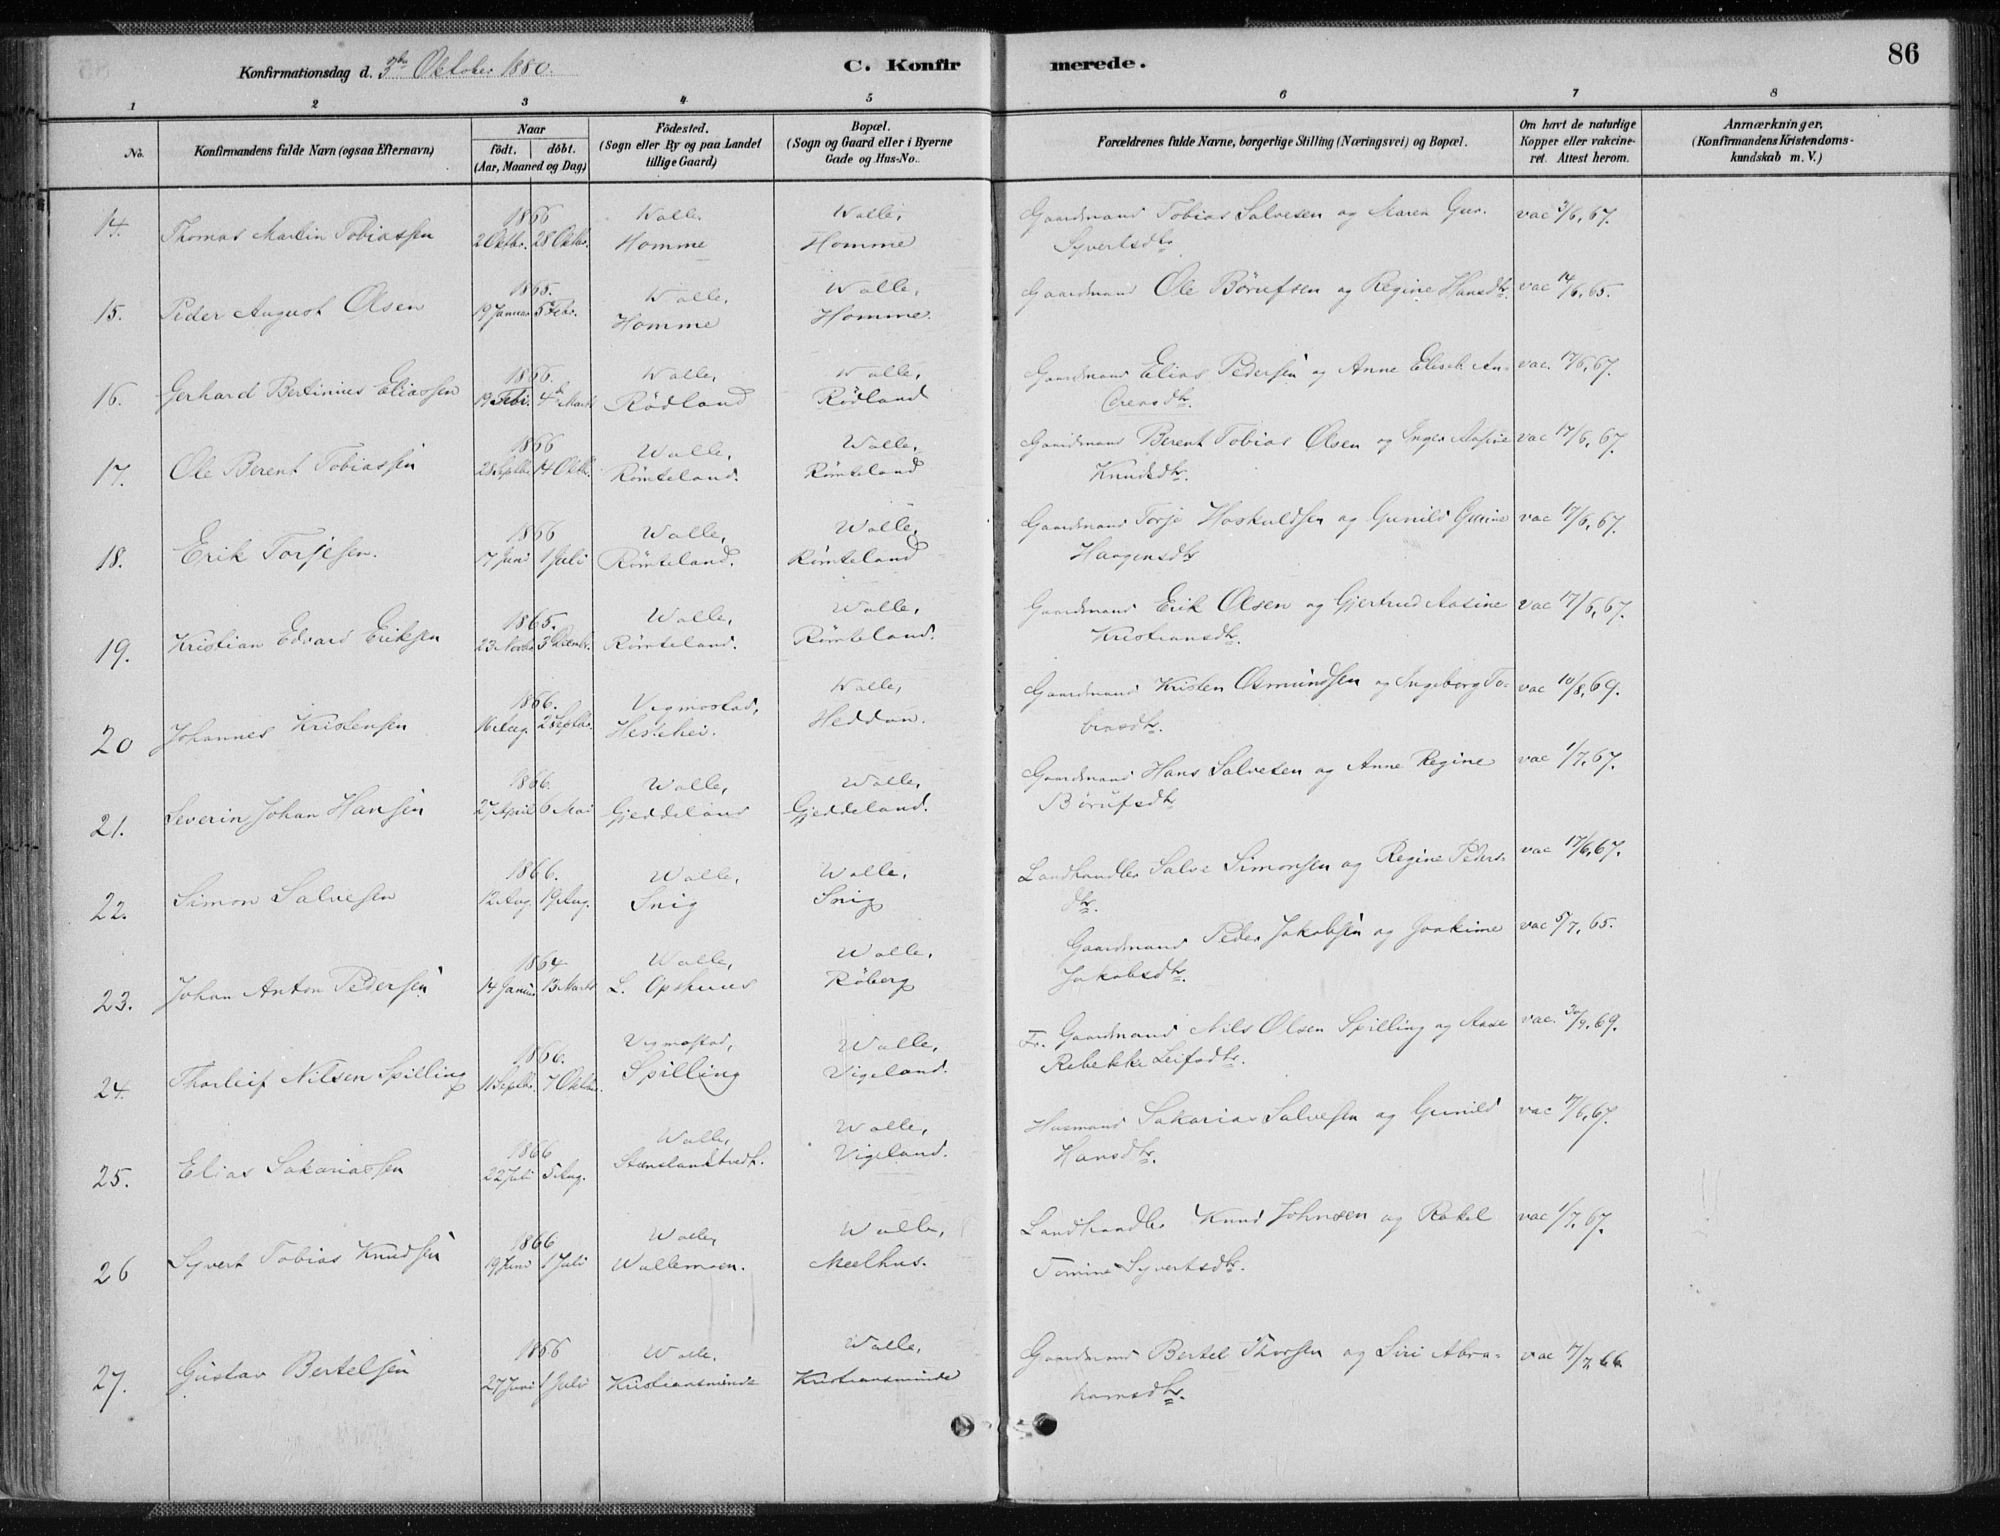 86
Konfirmationsdag d. 3die Oktober 1880.
C. Konfirmerede.
1 2 3 4 5 6 7 8
No.
Konfirmandens fulde Navn (ogsaa Efternavn)
Naar
födt. döbt.
(Aar, Maaned og Dag)
Födested.
(Sogn eller By og paa Landet
tillige Gaard)
Bopæl.
(Sogn og Gaard eller i Byerne
Gade og Hus-No.
Forældrenes fulde Navne, borgerlige Stilling (Næringsvei) og Bopæl.
Om havt de naturlige
Kopper eller vakcine-
ret. Attest herom.
Anmærkninger.
(Konfirmandens Kristendoms-
kundskab m. V.)
14. Thomas Martin Tobiassen 1866 2 Oktbr. 28 Oktbr. Walle, Homme Walle, Homme Gaardmand Tobias Salvesen og Maren Gur.
Syvertsdtr vac 3/6, 67.
15. Peder August Olsen 1865. 19 Januar 5 Febr. Walle, Homme Walle, Homme. Gaardmand Ole Börufsen og Regine Hansdtr. vac 14/6, 65.
16. Gerhard Bertinius Eliassen 1866. 19 Febr. 4de Marts Walle, Rödland Walle, Rödland Gaardmand Elias Pedersen og Anne Elisab. An-
drensdtr. vac. 17/6, 67.
17. Ole Berent Tobiassen 1866 28 Septbr. 14 Oktb. Walle, Römteland. Walle, Römteland Gaardmand Berent Tobias Olsen og Inger Aasine
Knudsdtr. vac 17/6, 67.
18. Erik Torjesen. 1866 17 Juni 1 Juli Walle, Römteland. Walle, Römteland Gaardmand Torje Hoskuldsen og Gunild Gurine
Haagensdtr vac 17/6, 67.
19. Kristian Edvard Eriksen 1865. 23 Novbr 3 Decembr. Walle, Römteland. Walle, Römteland. Gaardmand Erik Olsen og Gjertrud Aasine
Kristiansdtr. vac 17/6, 67.
20 Johannes Kristensen 1866. 16 Aug. 2 Septbr. Vigmostad, Hestehei. Walle, Heddan. Gaardmand Kristen Osmundsen og Ingeborg To-
biasdtr. vac 10/8, 69.
21. Severin Johan Hansen 1866. 27 April 6 Mai Walle, Gjeddeland Walle, Gjeddeland. Gaardmand Hans Salvesen og Anne Regine
Börufsdtr vac 1/7, 67.
22. Simon Salvesen 1866. 12 Aug. 19 Aug. Walle, Snig Walle, Snig Landhandler Salve Simonsen og Regine Peders-
dtr. vac 17/6, 67.
23. Johan Anton Pedersen 1864 14 Januar 13 Marts Walle, L. Opshuus Walle, Röberg Gaardmand Peder Jakobsen og Joakime
Jakobsdtr. vac 5/7, 65.
24. Thorleif Nilsen Spilling 1866. 11 Septbr. 7 Oktober. Vigmostad, Spilling Walle, Vigeland. Fr. Gaardmand Nils Olsen Spilling og Aase
Rebekke Leifsdtr. vac. 30/9, 69.
25. Elias Sakariassen 1866 22 Juli 5 Aug. Walle, Stenslandtvedt. Walle, Vigeland. Husmand Sakarias Salvesen og Gunild
Hansdtr. vac 17/6, 67.
26 Syvert Tobias Knudsen 1866 19 Juni 1 Juli Walle, Wallemoen. Walle, Meelhus. Landhandler Knud Johnsen og Rakel
Tomine Syvertsdtr. vac 1/7, 67.
27. Gustav Bertelsen 1866 27 Juni 1 Juli Walle. Kristiansminde Walle, Kristiansminde Gaardmand Bertel Thorsen og Siri Abra-
hamsdtr. vac 7/7, 66